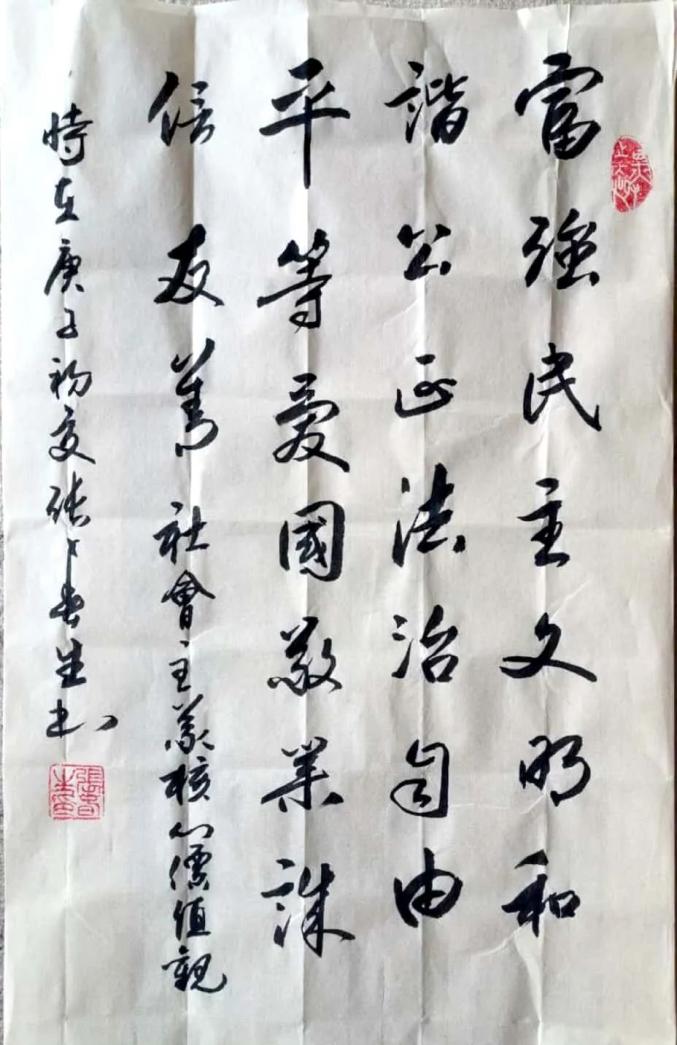 富強民主文明和
諧公正法治自由
平等愛國敬業誠
信友善社會主義核心價值觀
時在庚子初夏張生书